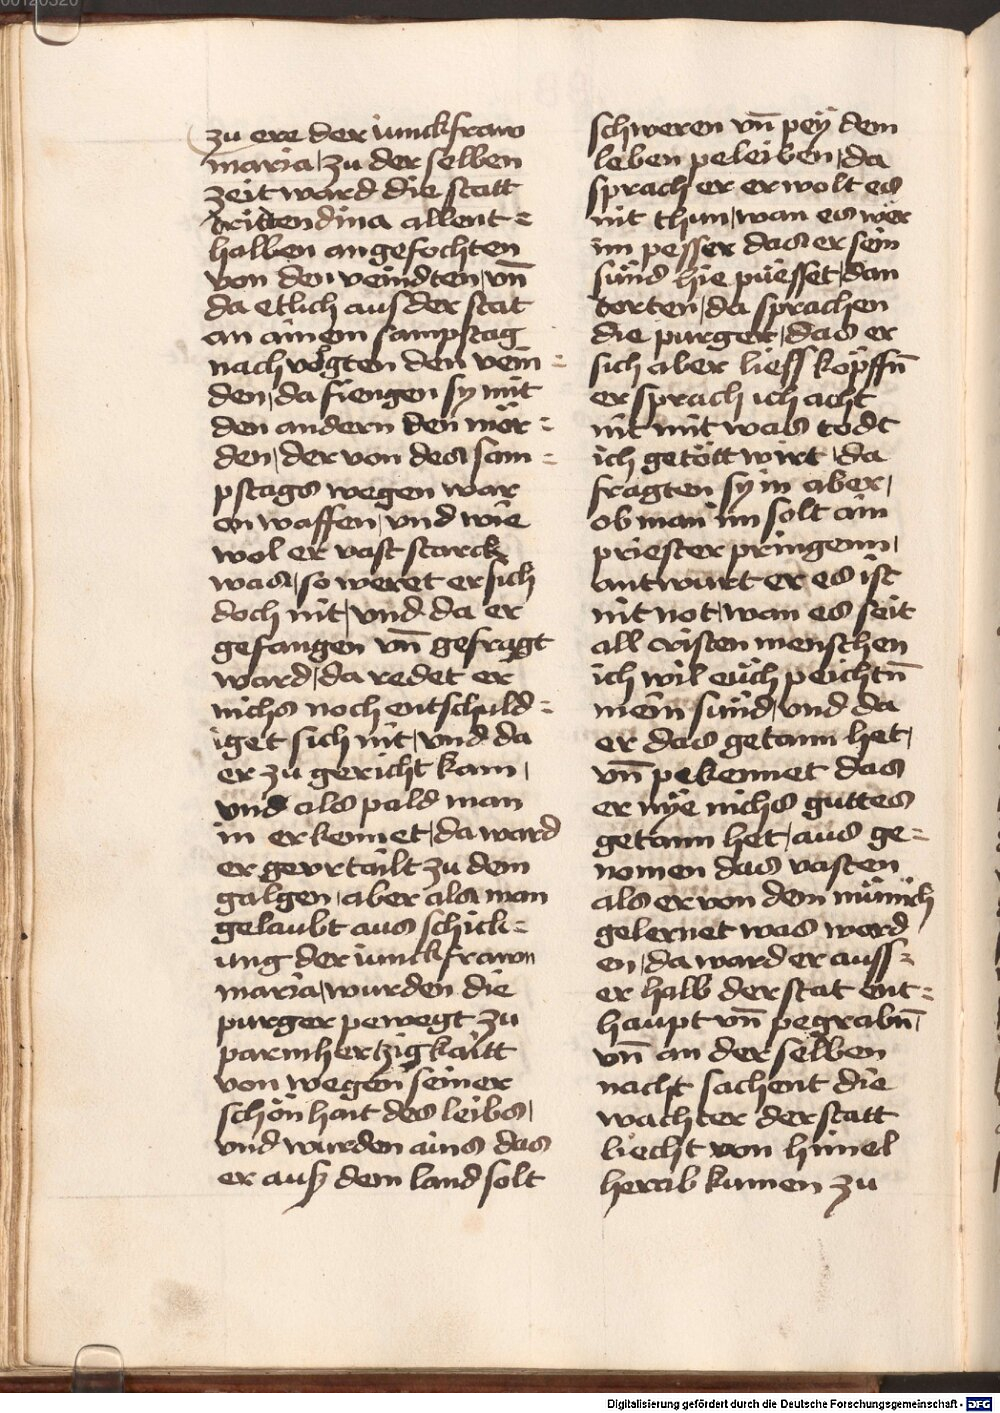 zu ere der iunckfraw
maria, zu der selben
zeit ward die statt
trittendina allent =
halben angefochten
von den veindten, vn̄
da etlich aus der stat
an ainem sampstag
nach volgten den vein =
den, da fiengen sy mit
den andern den mör =
den, der von des sam =
pstags wegen war
on waffen, vnd wie
wol er vast starck
was, so weret er sich
doch nit, vnd da er
gefangen vn̄ gefragt
ward, da redet er
nichs noch entschuld =
iget sich nit, vnd da
er zu gericht kam,
vnd als pald man
in erkennet, da ward
er gevrtailt zu dem
galgen, aber als man
gelaubt aus schick =
ung der iunckfrawn
maria, wurden die
purger pewegt zu
parmhertzigkaitt
von wegen seiner
schön hait des leibs,
vnd wurden ains das
er auß dem land solt
schweren vn̄ pey dem
leben peleiben, da
sprach er er wolt es
nit thun, wan es wer
im pesser das er sein
sünd hie püesset, dan
dorten, da sprachen
die purger, das er
sich aber liess köpffn̄
er sprach ich acht
nit mit was todt
ich getött wirt, da
fragten sy in aber,
ob man im solt ain
priester pringenn,
antwurt er es ist
nit not, wan es seit
all cristen menschen
ich wil euch peichtn̄
mein sünd, vnd da
er das getann het,
vn̄ pekennet das
er nye nichs guttes
getann het, aus ge =
nomen das vasten
als er von dem münich
gelernet was word
en, da ward er auss =
er halb der stat ent =
haupt vn̄ pegrabn̄,
vn̄ an der selben
nacht sachent die
wachter der statt
liecht von himel
herab kumen zu
00120320
Digitalisierung gefördert durch die Deutsche Forschungsgemeinschaft - DFG